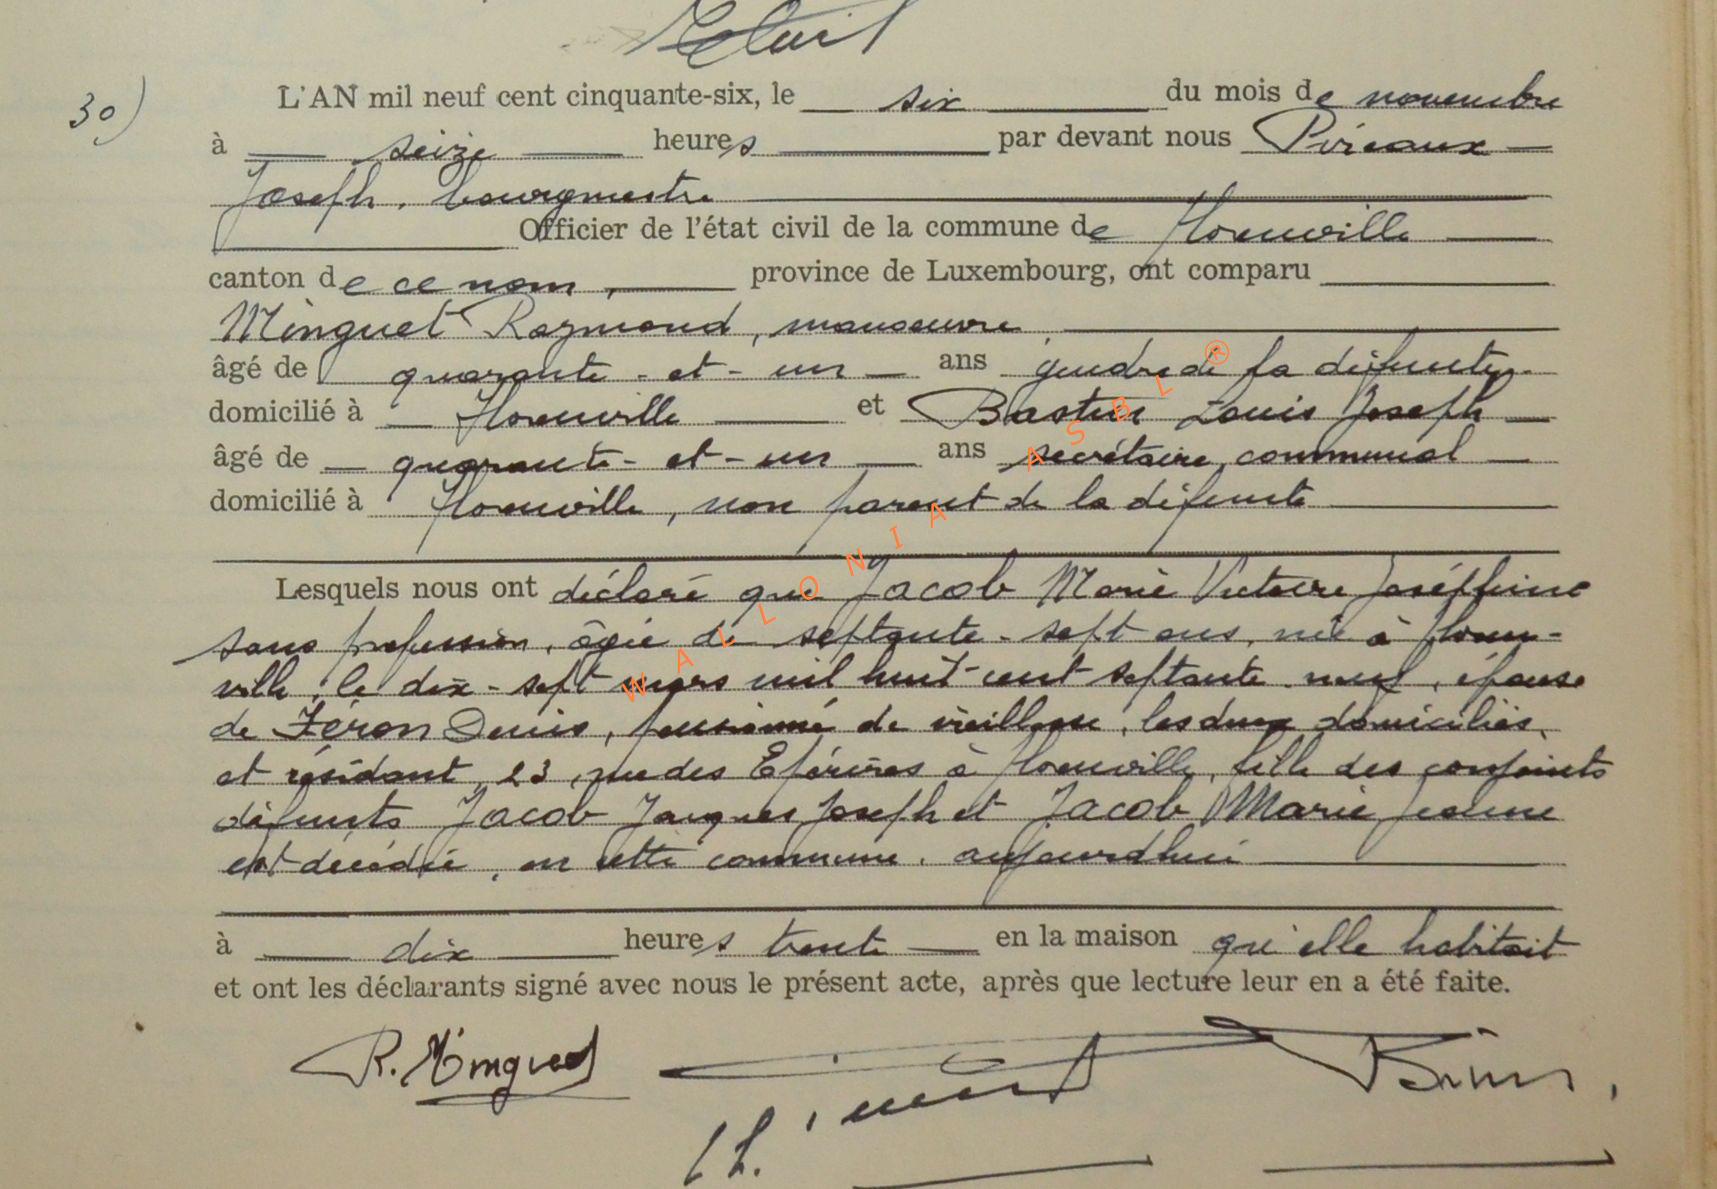 30)
L'AN mil neuf cent cinquante-six, le six du mois de novembre
à seize heures par devant nous Pireaux
Joseph, bourgmestre
Officier de l'état civil de la commune de Florenville
canton de ce nom, province de Luxembourg, ont comparu
Minguet Raymond, manoeuvre
âgé de quarante-et-un ans gendre de la défunte,
domicilié à Florenville et Bastin Louis Joseph
âgé de quarante-et-un ans secrétaire communal
domicilié à Florenville, non parent de la défunte
Lesquels nous ont déclaré que Jacob Marie Victoire Joséphine
sans profession, âgée de septante-sept ans, née à Floren-
ville, le dix-sept mars mil huit cent septante neuf, épouse
de Féron Denis, pensionné de vieillesse, les deux domiciliés
et résidant, 23, rue des Epérires à Florenville, fille des conjoints
défunts Jacob Jacques Joseph et Jacob Marie Jeanne
est décédée, en cette commune, aujourd'hui
à dix heures trente en la maison qu'elle habitait
et ont les déclarants signé avec nous le présent acte, après que lecture leur en a été faite.
R. Minguet
WALLONIA ASBL ®